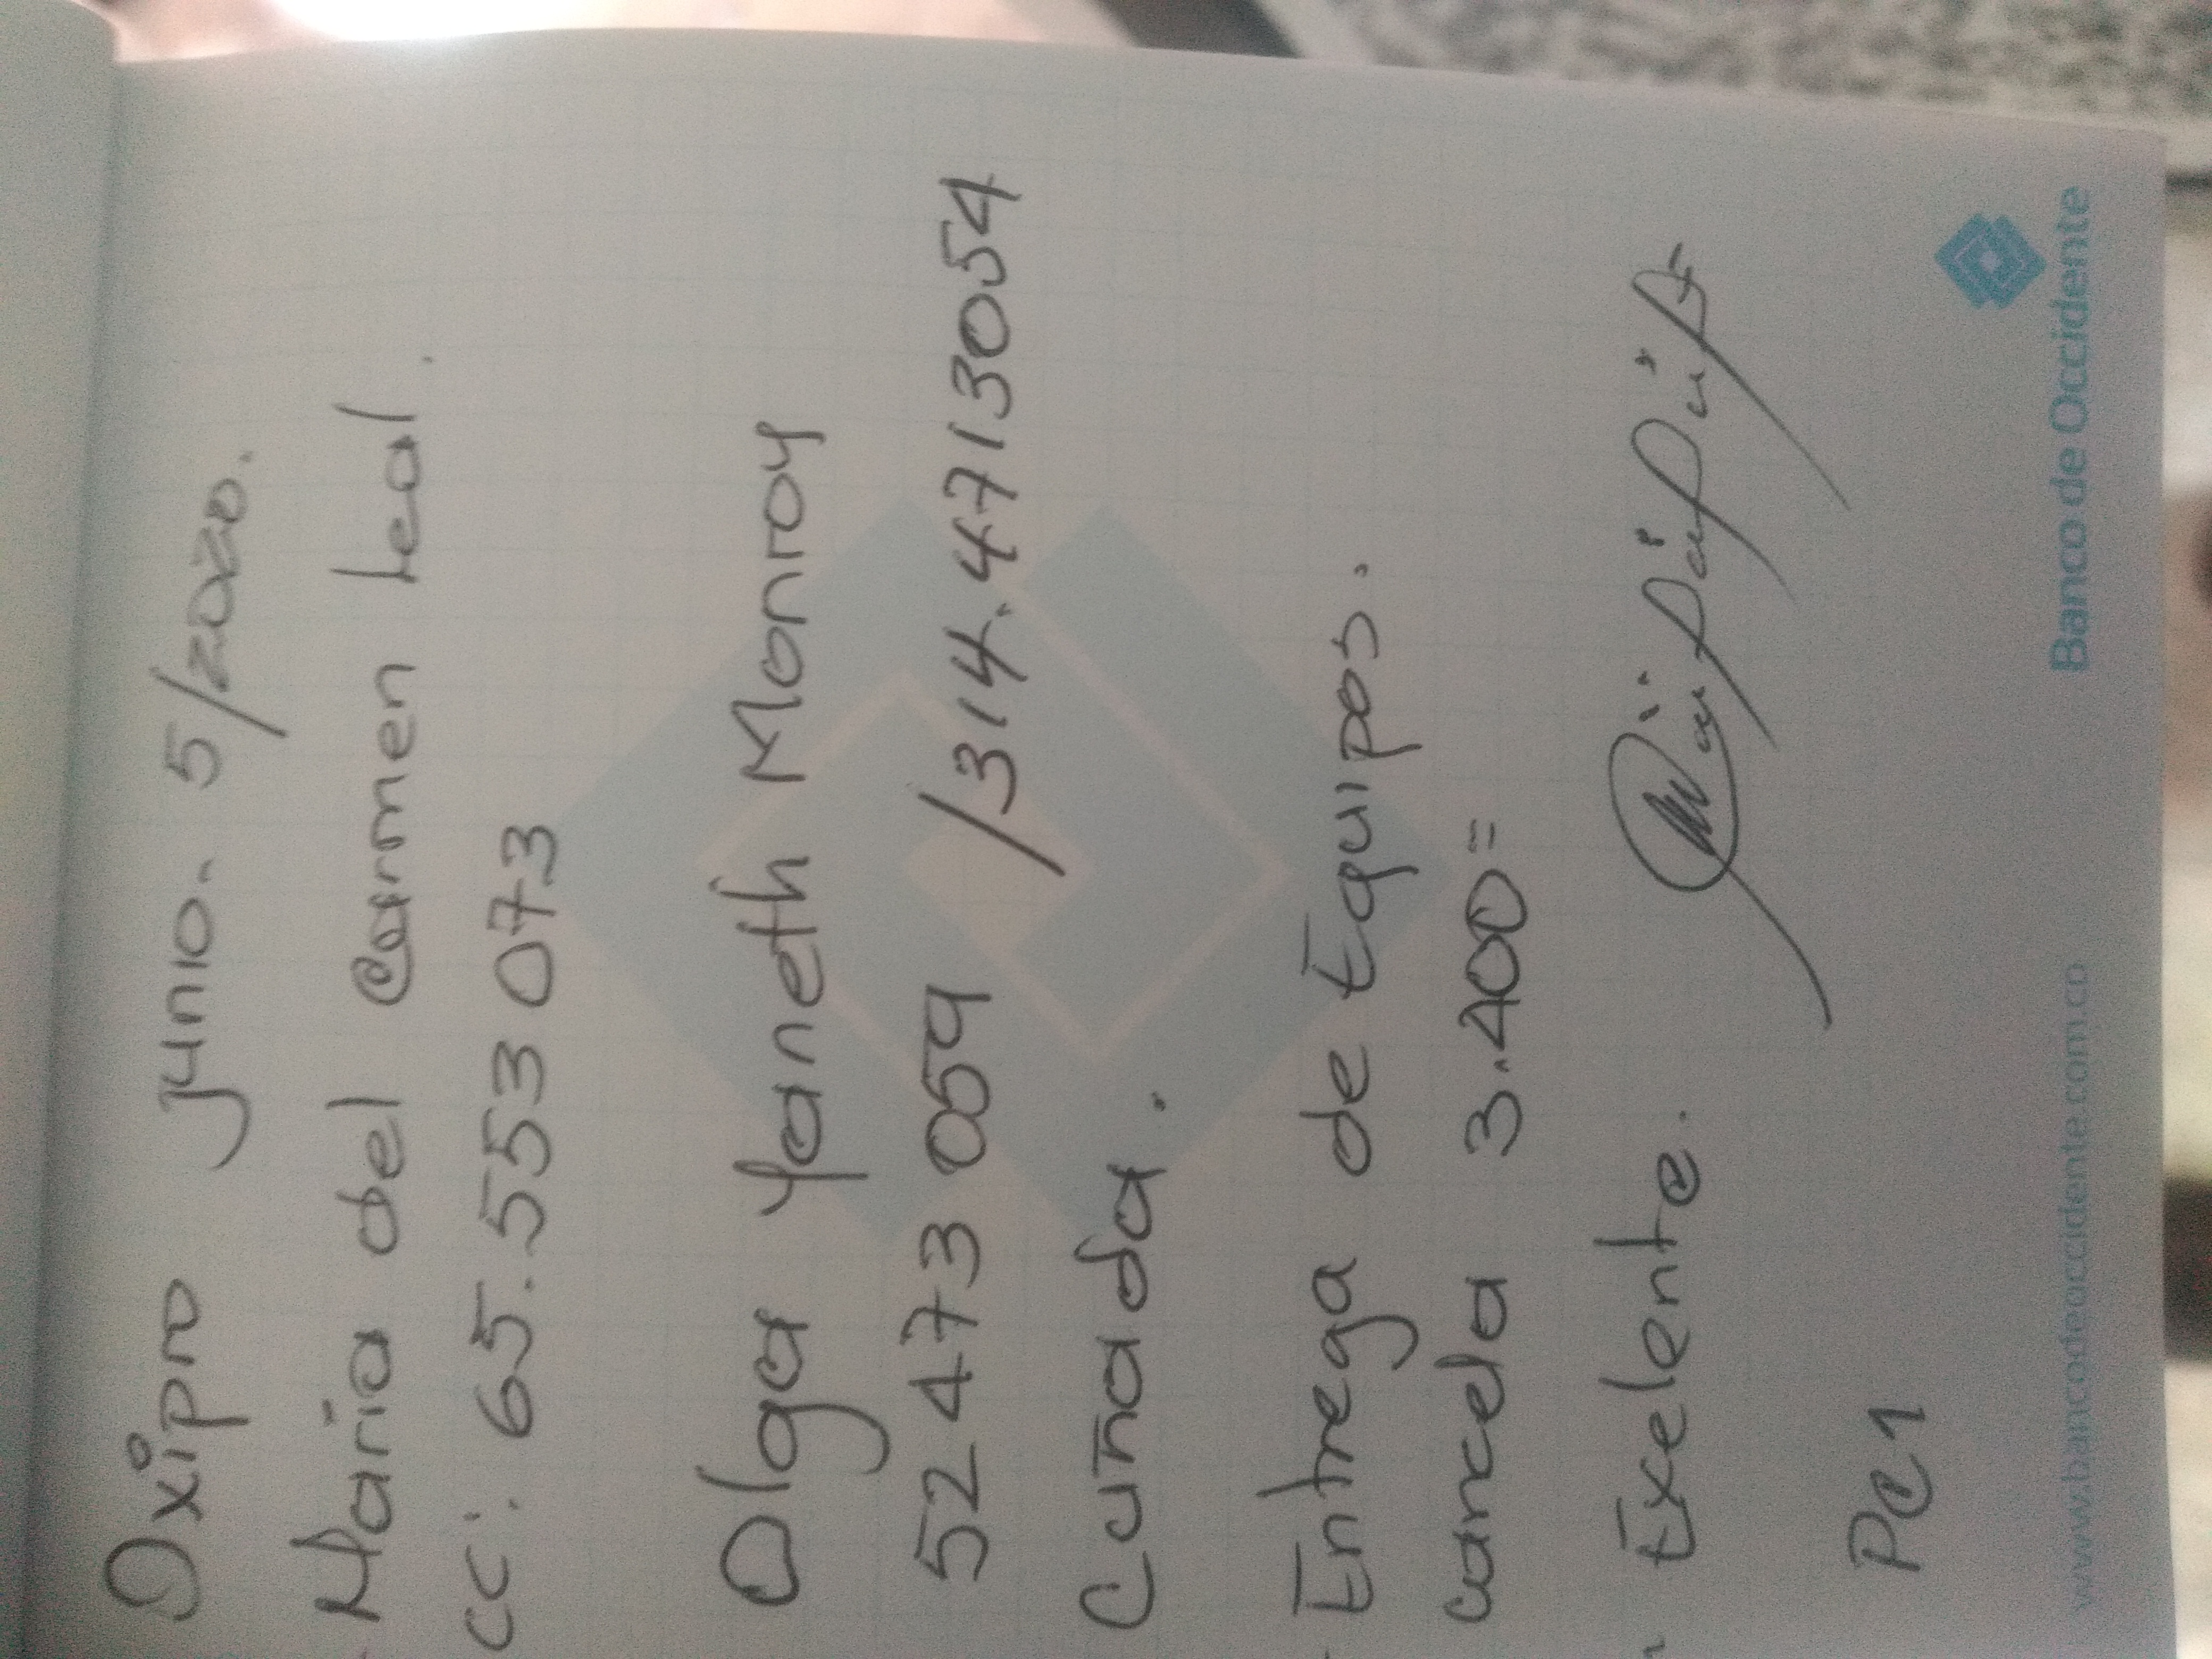 Oxipro junio. 5/2020.
- Maria del Carmen Leal.
CC: 65.553 073
Olga Yaneth Monroy
52 473 059 / 314.4713054
Cuñada.
- Entrega de Equipos.
cancela 3.400=
- Exelente.
PC1
www.bancodeoccidente.com.co Banco de Occidente